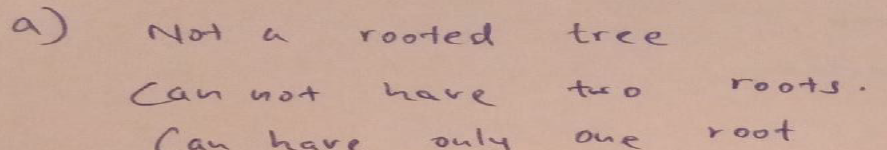 a) Not a rooted tree
Can not have two roots.
Can have only one root